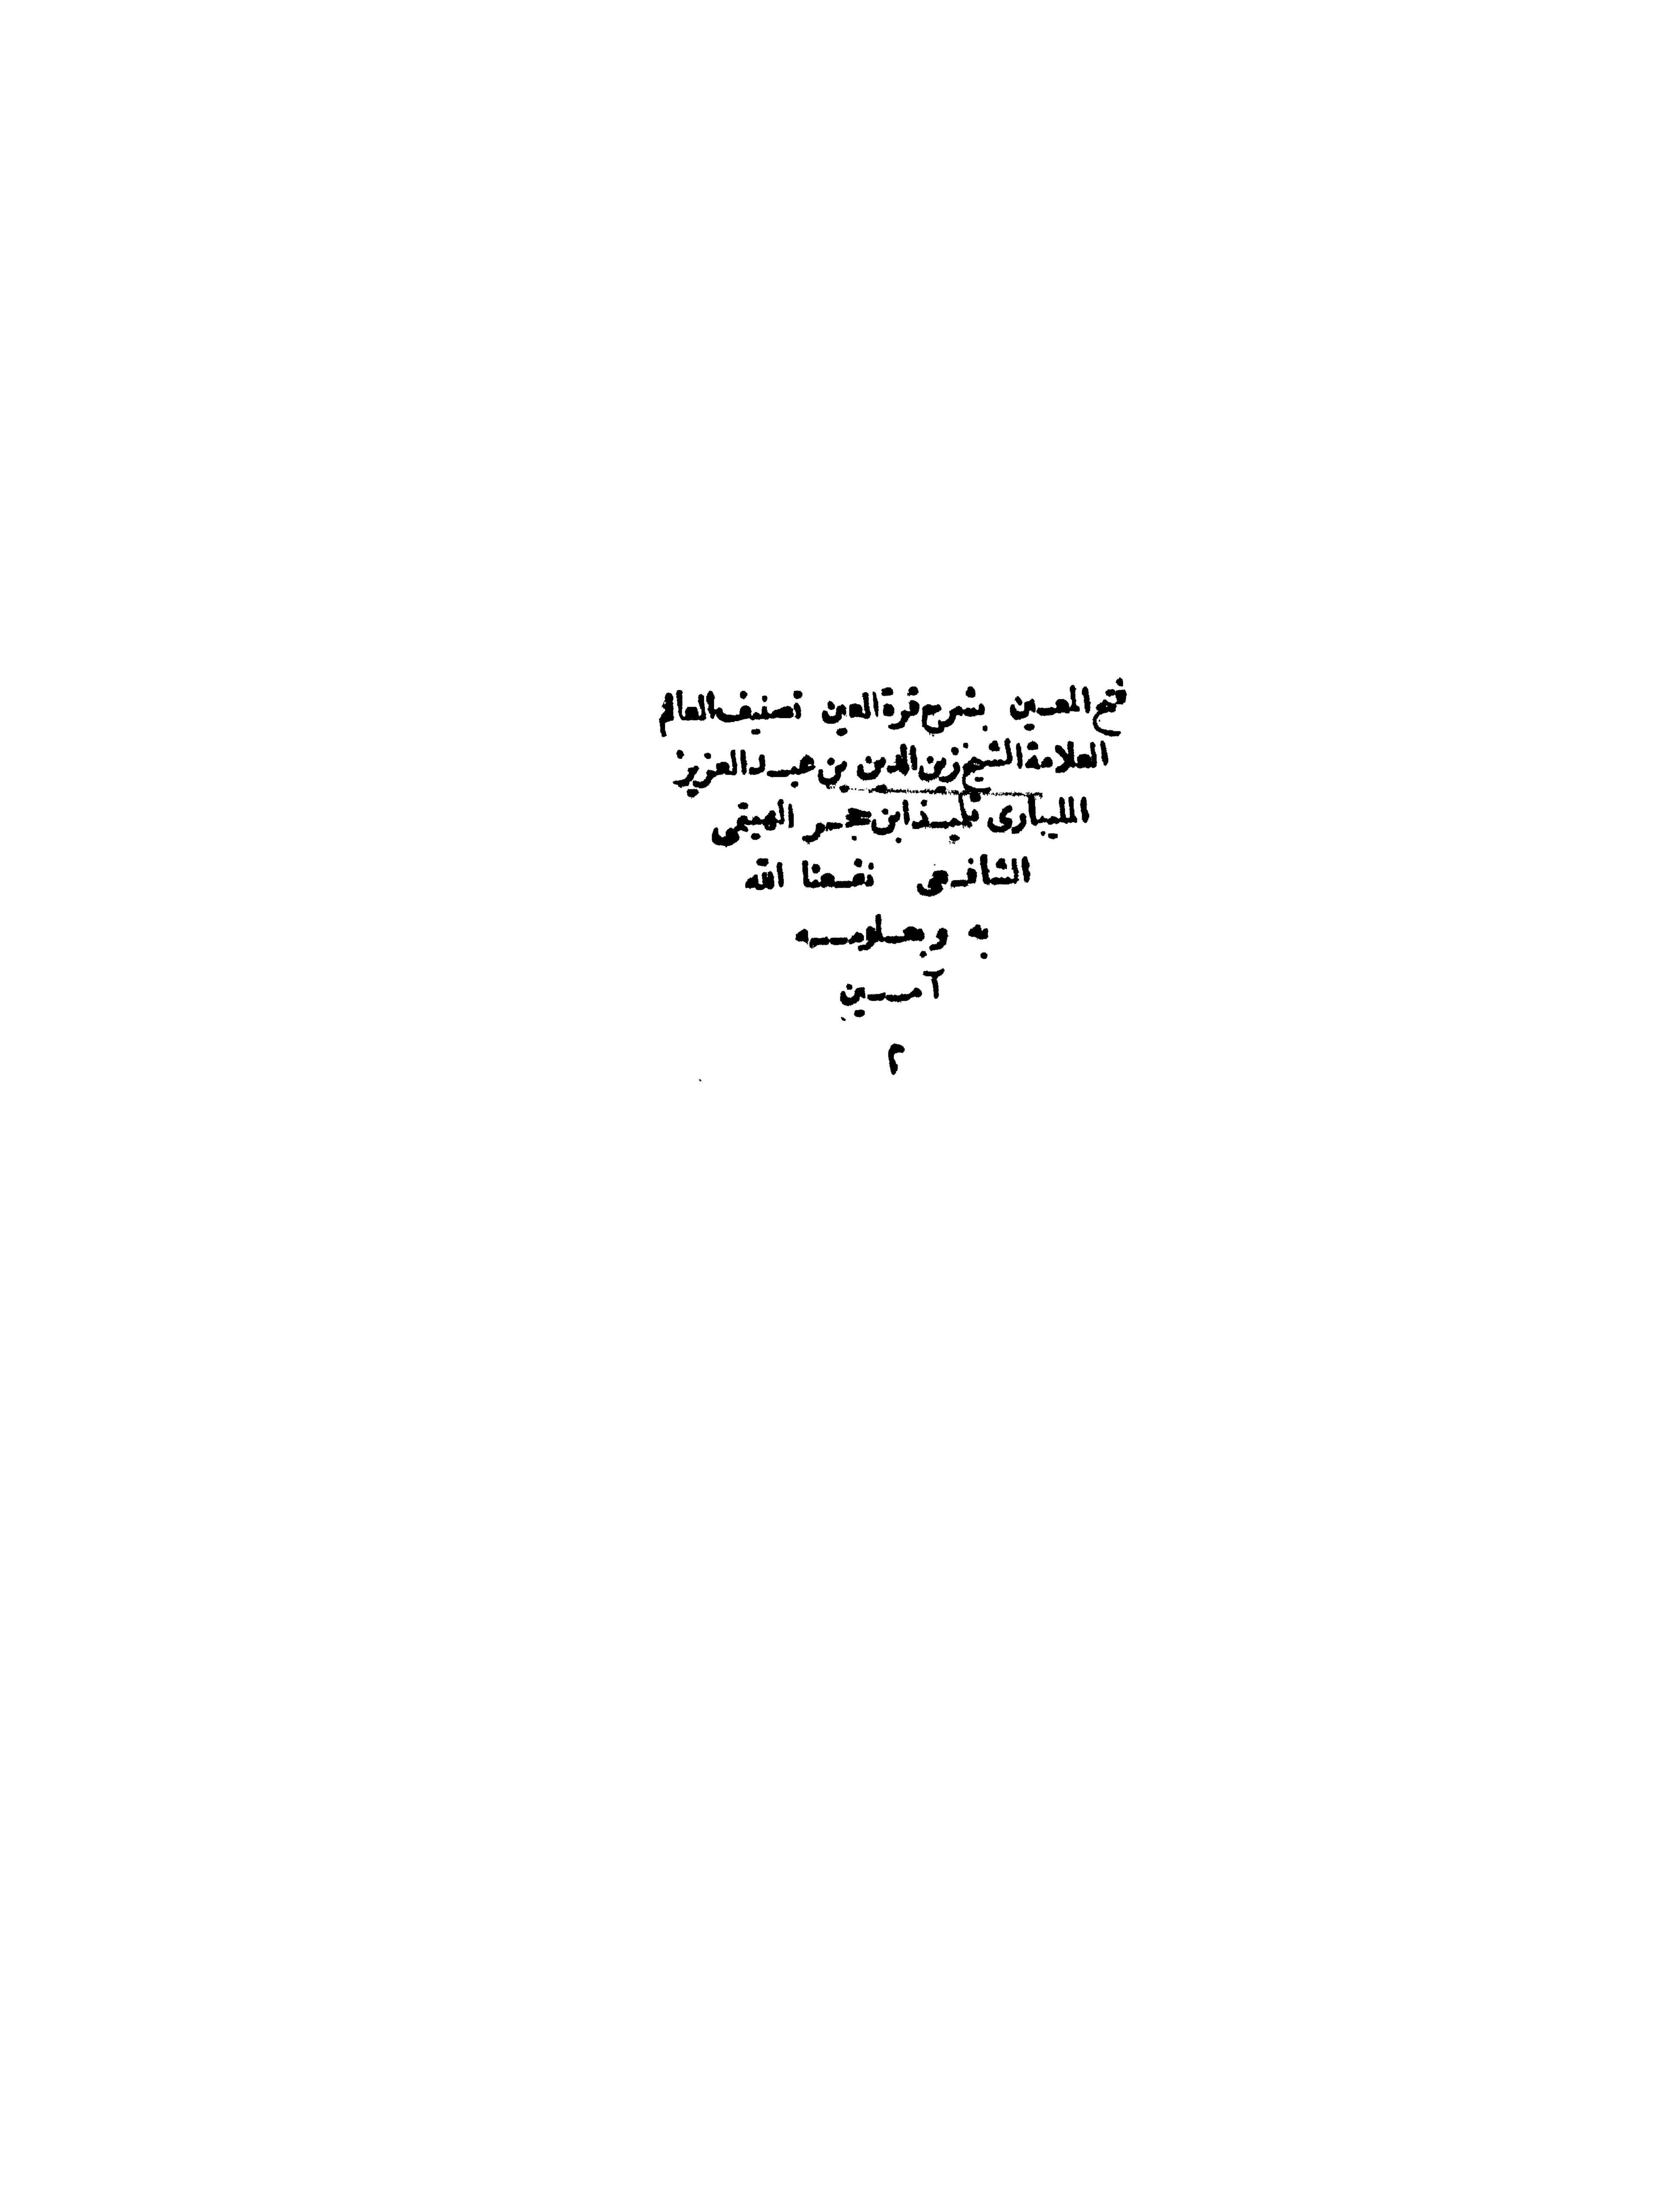 فتح المعين بشرح قرة العين تصنيف العالم
العلامة الشيخ زين الدين بن عبد العزيز
المليبارى تلميذ ابن حجر الهيتمى
الشافعى نفعنا الله
به وبعلومه
آمين
٢